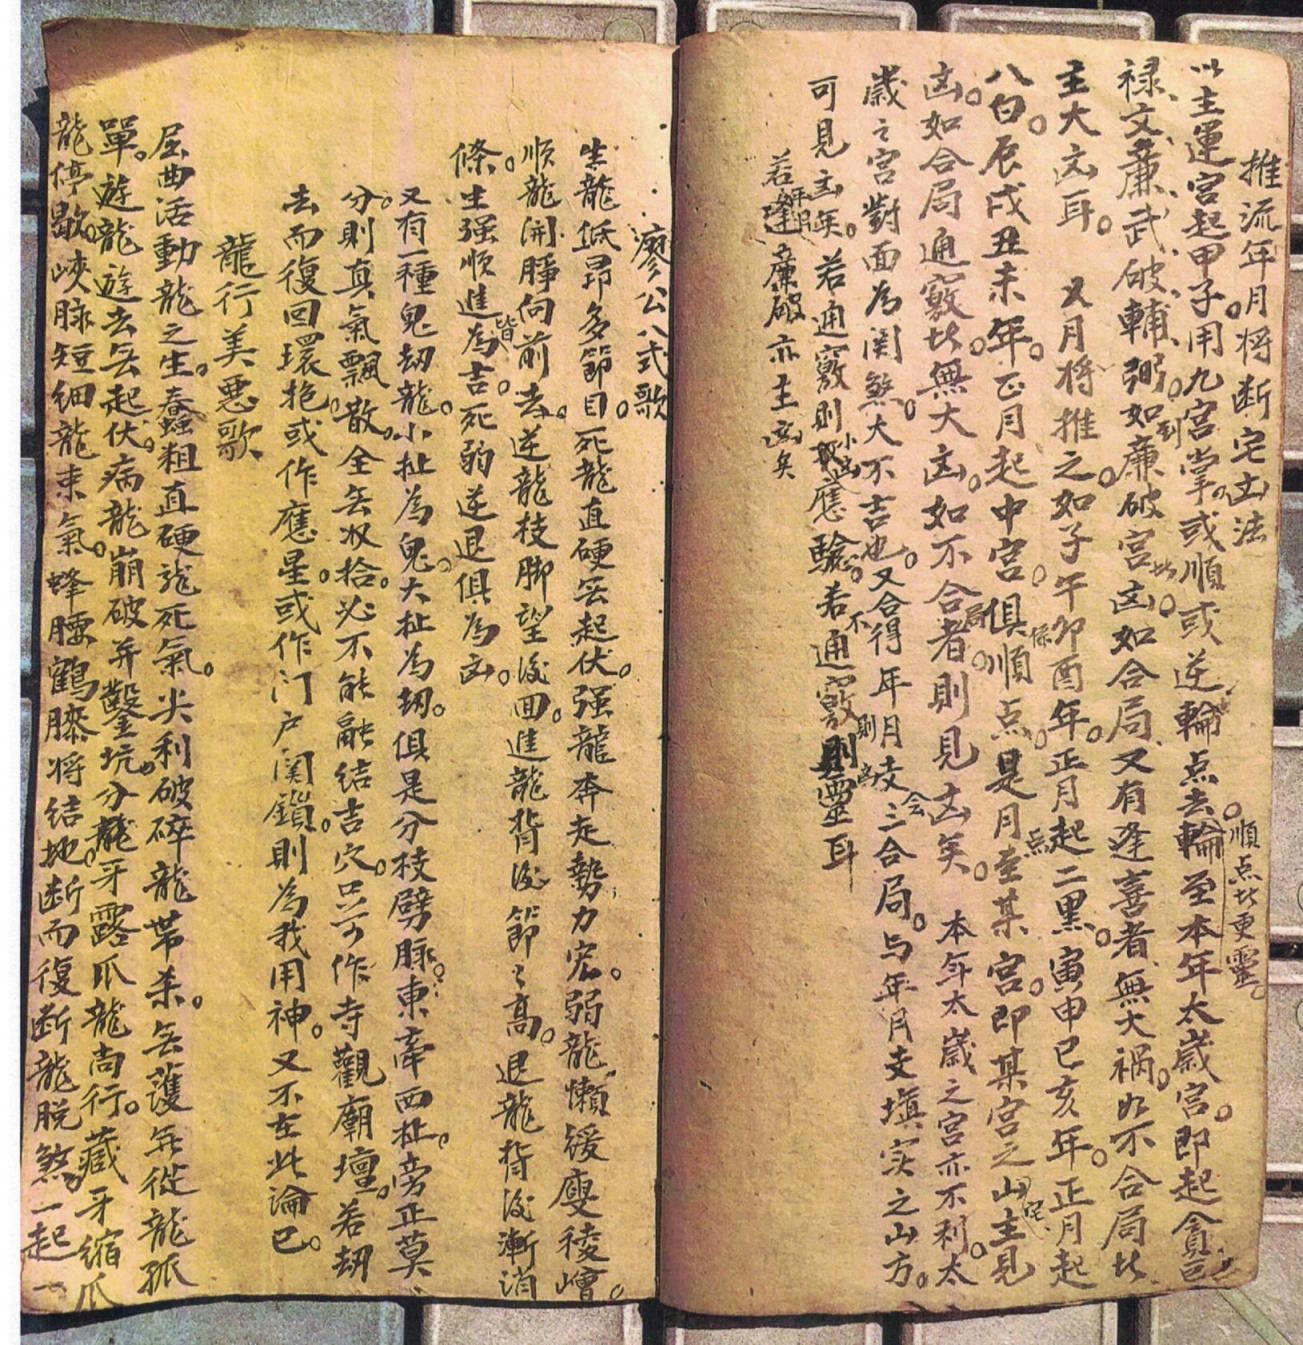 推流年月将断宅出法
以主運宫起甲子用九宫掌。或順或逆輪点去輪至本年太歲宫。即起貪巨
順点此更靈。
禄、文、廉、武、破、輔、弼。如廉破宫凶如合局、又有逢喜者、無大祸。如不合局此
到
主大凶耳。 又月将推之。如子午卯酉年。正月起二黑。寅申巳亥年。正月起
八白。辰戌丑未年。正月起中宫。俱順点。是月至某宫。即某宫之山主見
凶。如合局通竅此。無大凶。如不合者。則見凶矣。 本年太歲之宫亦不利。太
局
歲之宫對面為関煞。大不吉也。又合得年月支三合局。与年月支填实之山方。
会
可見主年。若通竅則應驗。若通竅則靈耳
小凶
不
則
若逢廉破亦主凶矣
年月
廖公八式歌
生龍低昂多節目。死龍直硬無起伏。强龍奔走勢力宏。弱龍懶缓瘦稜嶒。
順龍開睜向前去。逆龍枝脚望後回。進龍背後節々高。退龍背後漸消
條。生强順進為吉。死弱逆退俱為凶。
皆
又有一種鬼劫龍。小扯為鬼。大扯為劫。俱是分枝劈脉。東牽西扯。旁正莫
分。則真氣飄散。全無収拾。必不能融结吉穴。只可作寺觀廟壇。若劫
去而復回環抱。或作應星。或作门户関鎖。則為我用神。又不在此論已。
龍行美惡歌
屈曲活動龍之生。蠢粗直硬龍死氣。尖利破碎龍带杀。無護無從龍孤
單。遊龍遊去無起伏。病龍崩破并鑿坑。分龍牙露爪龍尚行。藏牙缩爪
龍停歇。峽脉短細龍束氣。蜂腰鶴膝将结地。断而復断龍脱煞。一起一